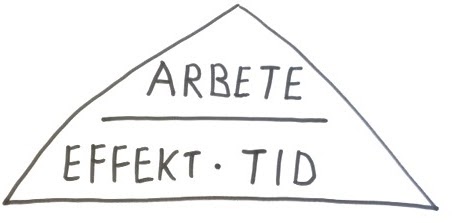 ARBETE
EFFEKT · TID